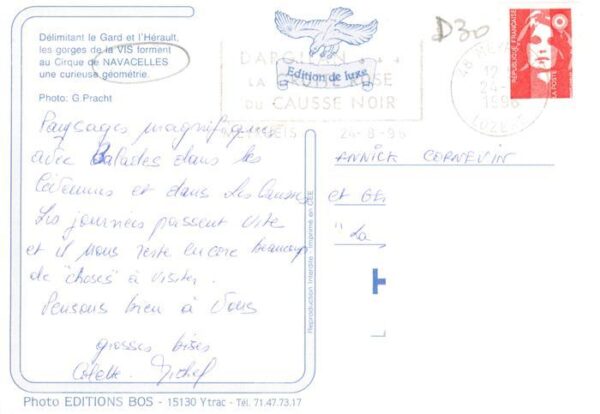 Délimitant le Gard et l'Hérault,
les gorges de la VIS forment
au Cirque de NAVACELLES
une curieuse géométrie.
Photo: G.Pracht
Edition de luxe
DARGILAN
LA ROSE
DU CAUSSE NOIR
24-8-96
D30
48
12
24-
1996
LOZERE
RÉPUBLIQUE FRANÇAISE
LA POSTE
Paysages magnifiques
avec Balades dans les
Cévennes et dans les Causses
Les journées passent vite
et il nous reste encore beaucoup
de "choses" à visiter.
Pensons bien à vous
grosses bises
Colette Michel
ANNICK CORNEVIN
et GE
"La
Reproduction Interdite - Imprimé en CEE
Photo EDITIONS BOS - 15130 Ytrac - Tél. 71.47.73.17